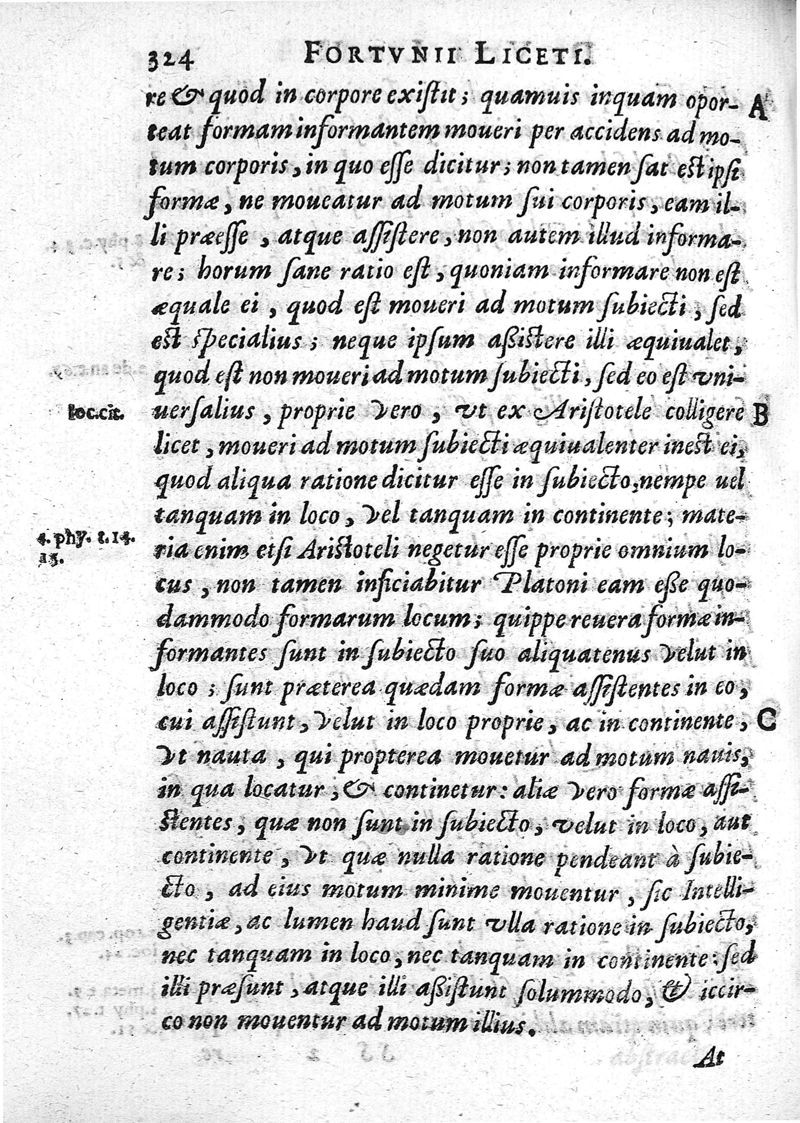 324 FORTVNII LICETI.
re & quod in corpore existit; quamuis inquam opor- A
teat formam informantem moueri per accidens ad mo-
tum corporis, in quo esse dicitur; non tamen sat est ipsi
formæ, ne moueatur ad motum sui corporis, eam il-
li præesse, atque assistere, non autem illud informa-
re; horum sane ratio est, quoniam informare non est
æquale ei, quod est moueri ad motum subiecti, sed
est specialius; neque ipsum assistere illi æquiualet,
quod est non moueri ad motum subiecti, sed eo est vni-
loc.cit. uersalius, proprie vero, vt ex Aristotele colligere B
licet, moueri ad motum subiecti æquiualenter inest ei,
quod aliqua ratione dicitur esse in subiecto, nempe uel
tanquam in loco, vel tanquam in continente; mate-
4. phy. t.14. ria enim etsi Aristoteli negetur esse proprie omnium lo-
15. cus, non tamen inficiabitur Platoni eam esse quo-
dammodo formarum locum; quippe reuera formæ in-
formantes sunt in subiecto suo aliquatenus velut in
loco; sunt præterea quædam formæ assistentes in eo,
cui assistunt, velut in loco proprie, ac in continente, C
vt nauta, qui propterea mouetur ad motum nauis,
in qua locatur, & continetur: aliæ vero formæ assi-
stentes, quæ non sunt in subiecto, velut in loco, aut
continente, vt quæ nulla ratione pendeant à subie-
cto, ad eius motum minime mouentur, sic Intelli-
gentiæ, ac lumen haud sunt vlla ratione in subiecto,
nec tanquam in loco, nec tanquam in continente: sed
illi præsunt, atque illi assistunt solummodo, & iccir-
co non mouentur ad motum illius.
At